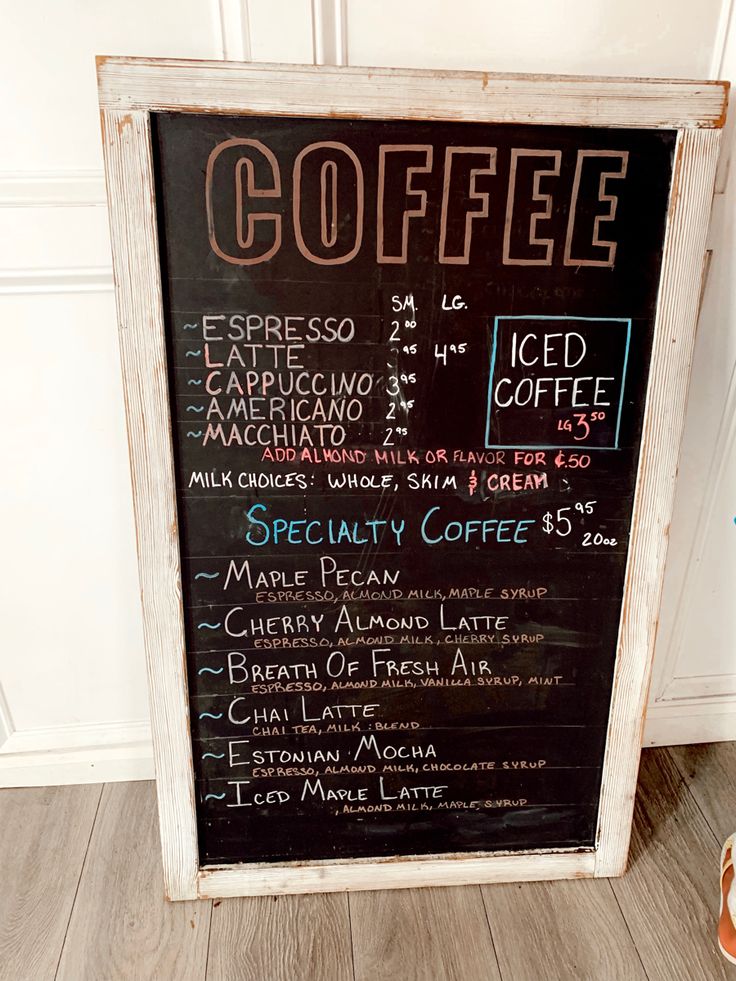 COFFEE
SM. LG.
~ESPRESSO 2.00
~LATTE 4.95
~CAPPUCCINO 3.95
~AMERICANO 2.95
~MACCHIATO 2.95
ICED
COFFEE
LG 3.50
ADD ALMOND MILK OR FLAVOR FOR ¢.50
MILK CHOICES: WHOLE, SKIM & CREAM
SPECIALTY COFFEE $5.95
20oz
~MAPLE PECAN
ESPRESSO, ALMOND MILK, MAPLE SYRUP
~CHERRY ALMOND LATTE
ESPRESSO, ALMOND MILK, CHERRY SYRUP
~BREATH OF FRESH AIR
ESPRESSO, ALMOND MILK, VANILLA SYRUP, MINT
~CHAI LATTE
CHAI TEA, MILK :BLEND
~ESTONIAN MOCHA
ESPRESSO, ALMOND MILK, CHOCOLATE SYRUP
~ICED MAPLE LATTE
, ALMOND MILK, MAPLE SYRUP